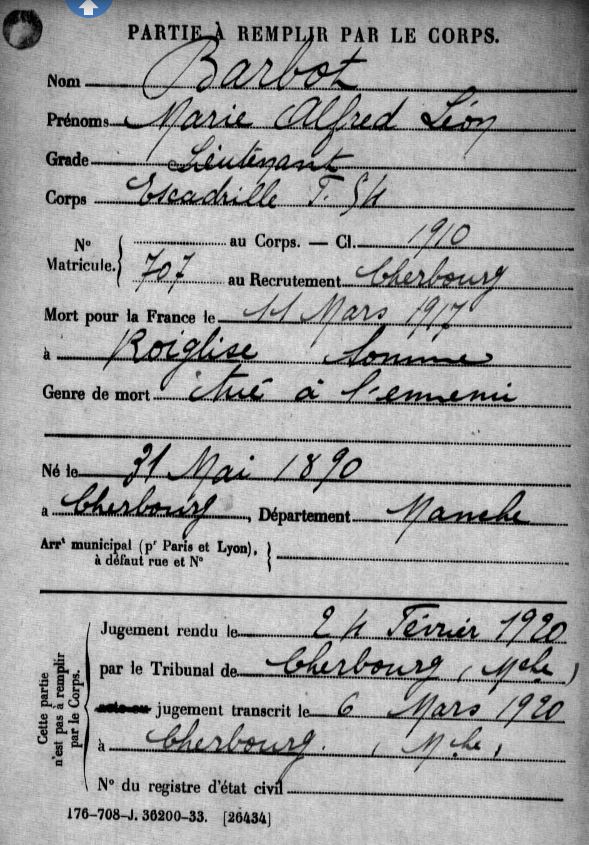 PARTIE À REMPLIR PAR LE CORPS.
Nom Barbot
Prénoms Marie Alfred Léon
Grade Lieutenant
Corps Escadrille F. 54
N° Matricule. au Corps. — Cl. 1910
707 au Recrutement Cherbourg
Mort pour la France le 11 Mars 1917
à Roiglise Somme
Genre de mort tué à l'ennemi
Né le 31 Mai 1890
à Cherbourg, Département Manche
Arrt municipal (pr Paris et Lyon),
à défaut rue et N°
Cette partie n'est pas à remplir par le Corps.
Jugement rendu le 24 Février 1920
par le Tribunal de Cherbourg (Mche)
jugement transcrit le 6 Mars 1920
à Cherbourg. (Mche)
N° du registre d'état civil
176-708-J. 36200-33. [26434]